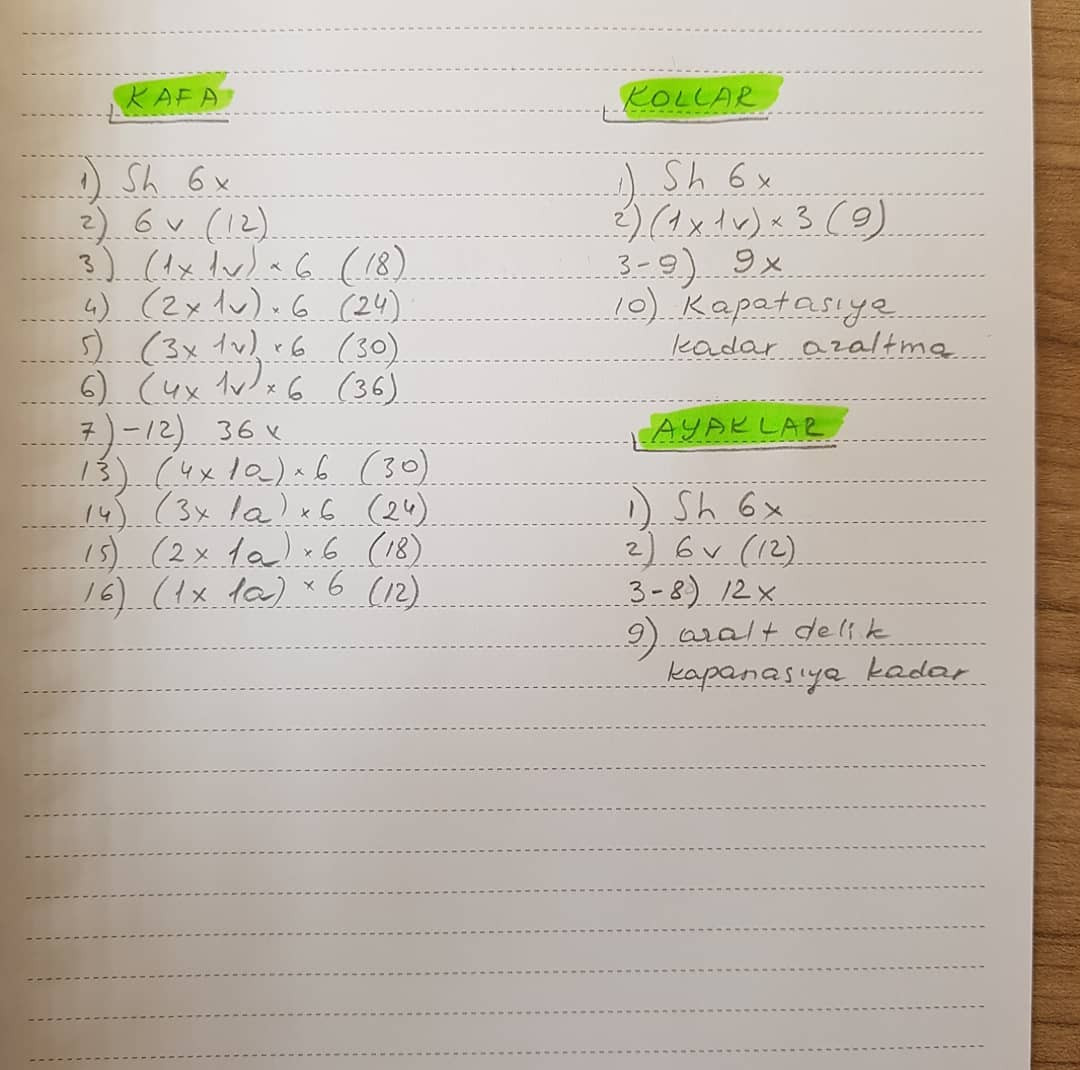 KAFA
1) Sh 6x
2) 6v (12)
3) (1x 1v) × 6 (18)
4) (2x 1v) × 6 (24)
5) (3x 1v) × 6 (30)
6) (4x 1v) × 6 (36)
7)-12) 36x
13) (4x 1a) × 6 (30)
14) (3x 1a) × 6 (24)
15) (2x 1a) × 6 (18)
16) (1x 1a) × 6 (12)
KOLLAR
1) Sh 6x
2) (1x 1v) × 3 (9)
3-9) 9x
10) Kapatasıya
kadar azaltma
AYAKLAR
1) Sh 6x
2) 6v (12)
3-8) 12x
9) azalt delik
kapanasıya kadar